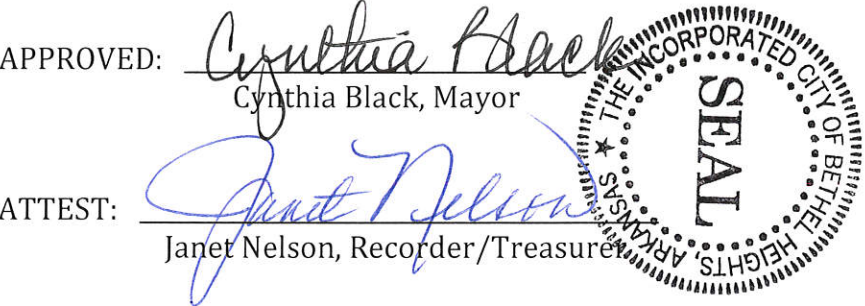 APPROVED: Cynthia Black
Cynthia Black, Mayor
ATTEST: Janet Nelson
Janet Nelson, Recorder/Treasurer
THE INCORPORATED CITY OF BETHEL HEIGHTS, ARKANSAS ★
SEAL